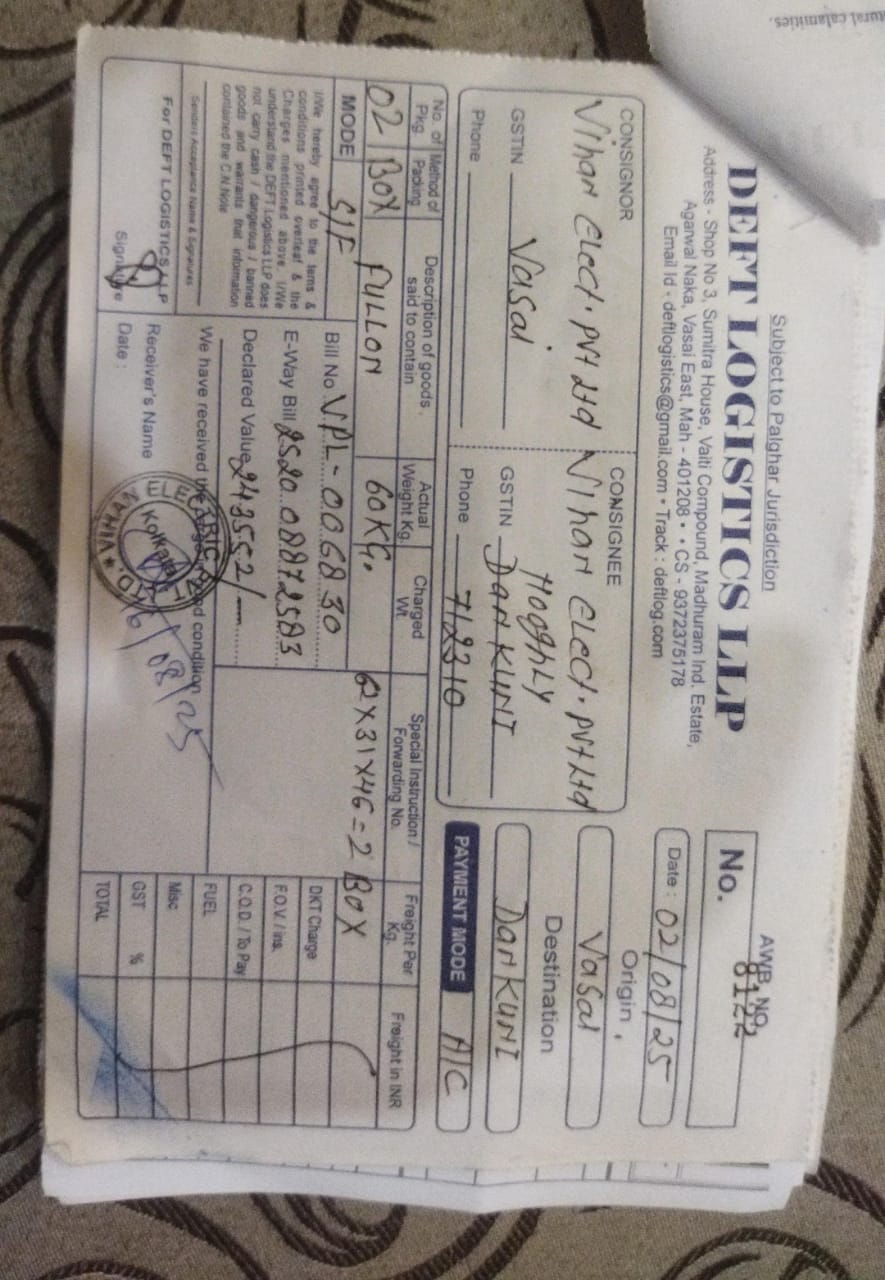 tural calamities.
Subject to Palghar Jurisdiction
DEFT LOGISTICS LLP
Address - Shop No 3, Sumitra House, Vaiti Compound, Madhuram Ind. Estate,
Agarwal Naka, Vasai East, Mah - 401208 • • CS - 9372375178
Email Id - deftlogistics@gmail.com • Track : deftlog.com
AWB. NO.
No. 8122
Date : 02/08/25
CONSIGNOR
Vihan Elect. Pvt Ltd
GSTIN Vasai
Phone
CONSIGNEE
Vihan Elect. Pvt Ltd
Hooghly
GSTIN DanKuni
Phone 712310
Origin
Vasai
Destination
DanKuni
PAYMENT MODE A/C
No. of Pkg. Method of Packing Description of goods said to contain Actual Weight Kg. Charged Wt Special Instruction / Forwarding No. Freight Per Kg. Freight in INR
02 BOX 60KG. 62X31X46=2 BOX
MODE S/F
Bill No VPL-0068 30
E-Way Bill 2520 0887 2583
Declared Value 243552/-
I/We hereby agree to the terms &
conditions printed overleaf & the
Charges mentioned above I/We
understand the DEFT Logistics LLP does
not carry cash / dangerous / banned
goods and warrants that information
contained the C.N Note
Senders Acceptance Name & Signatures
For DEFT LOGISTICS LLP
Signature
We have received the good condition
Receiver's Name
Date :
Kolkata
08/25
DKT Charge
F.O.V / ins.
C.O.D. / To Pay
FUEL
Misc
GST %
TOTAL